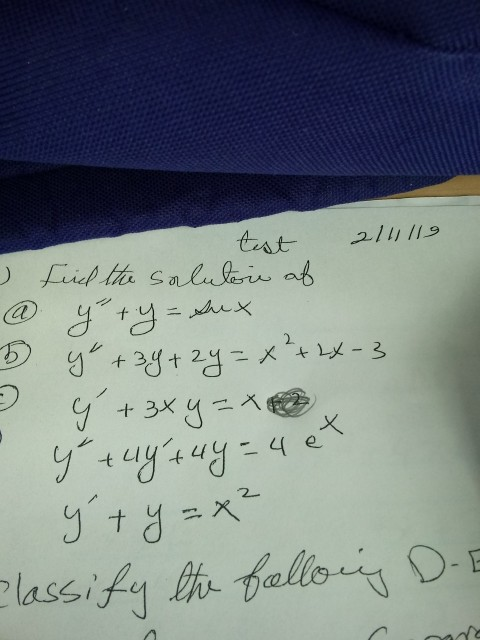 test 2/11/19
) Find the solution of
(a) y" + y = sin x
(b) y" + 3y + 2y = x² + 2x - 3
y' + 3xy = x
y" + 4y' + 4y = 4 eˣ
y' + y = x²
Classify the following D-E